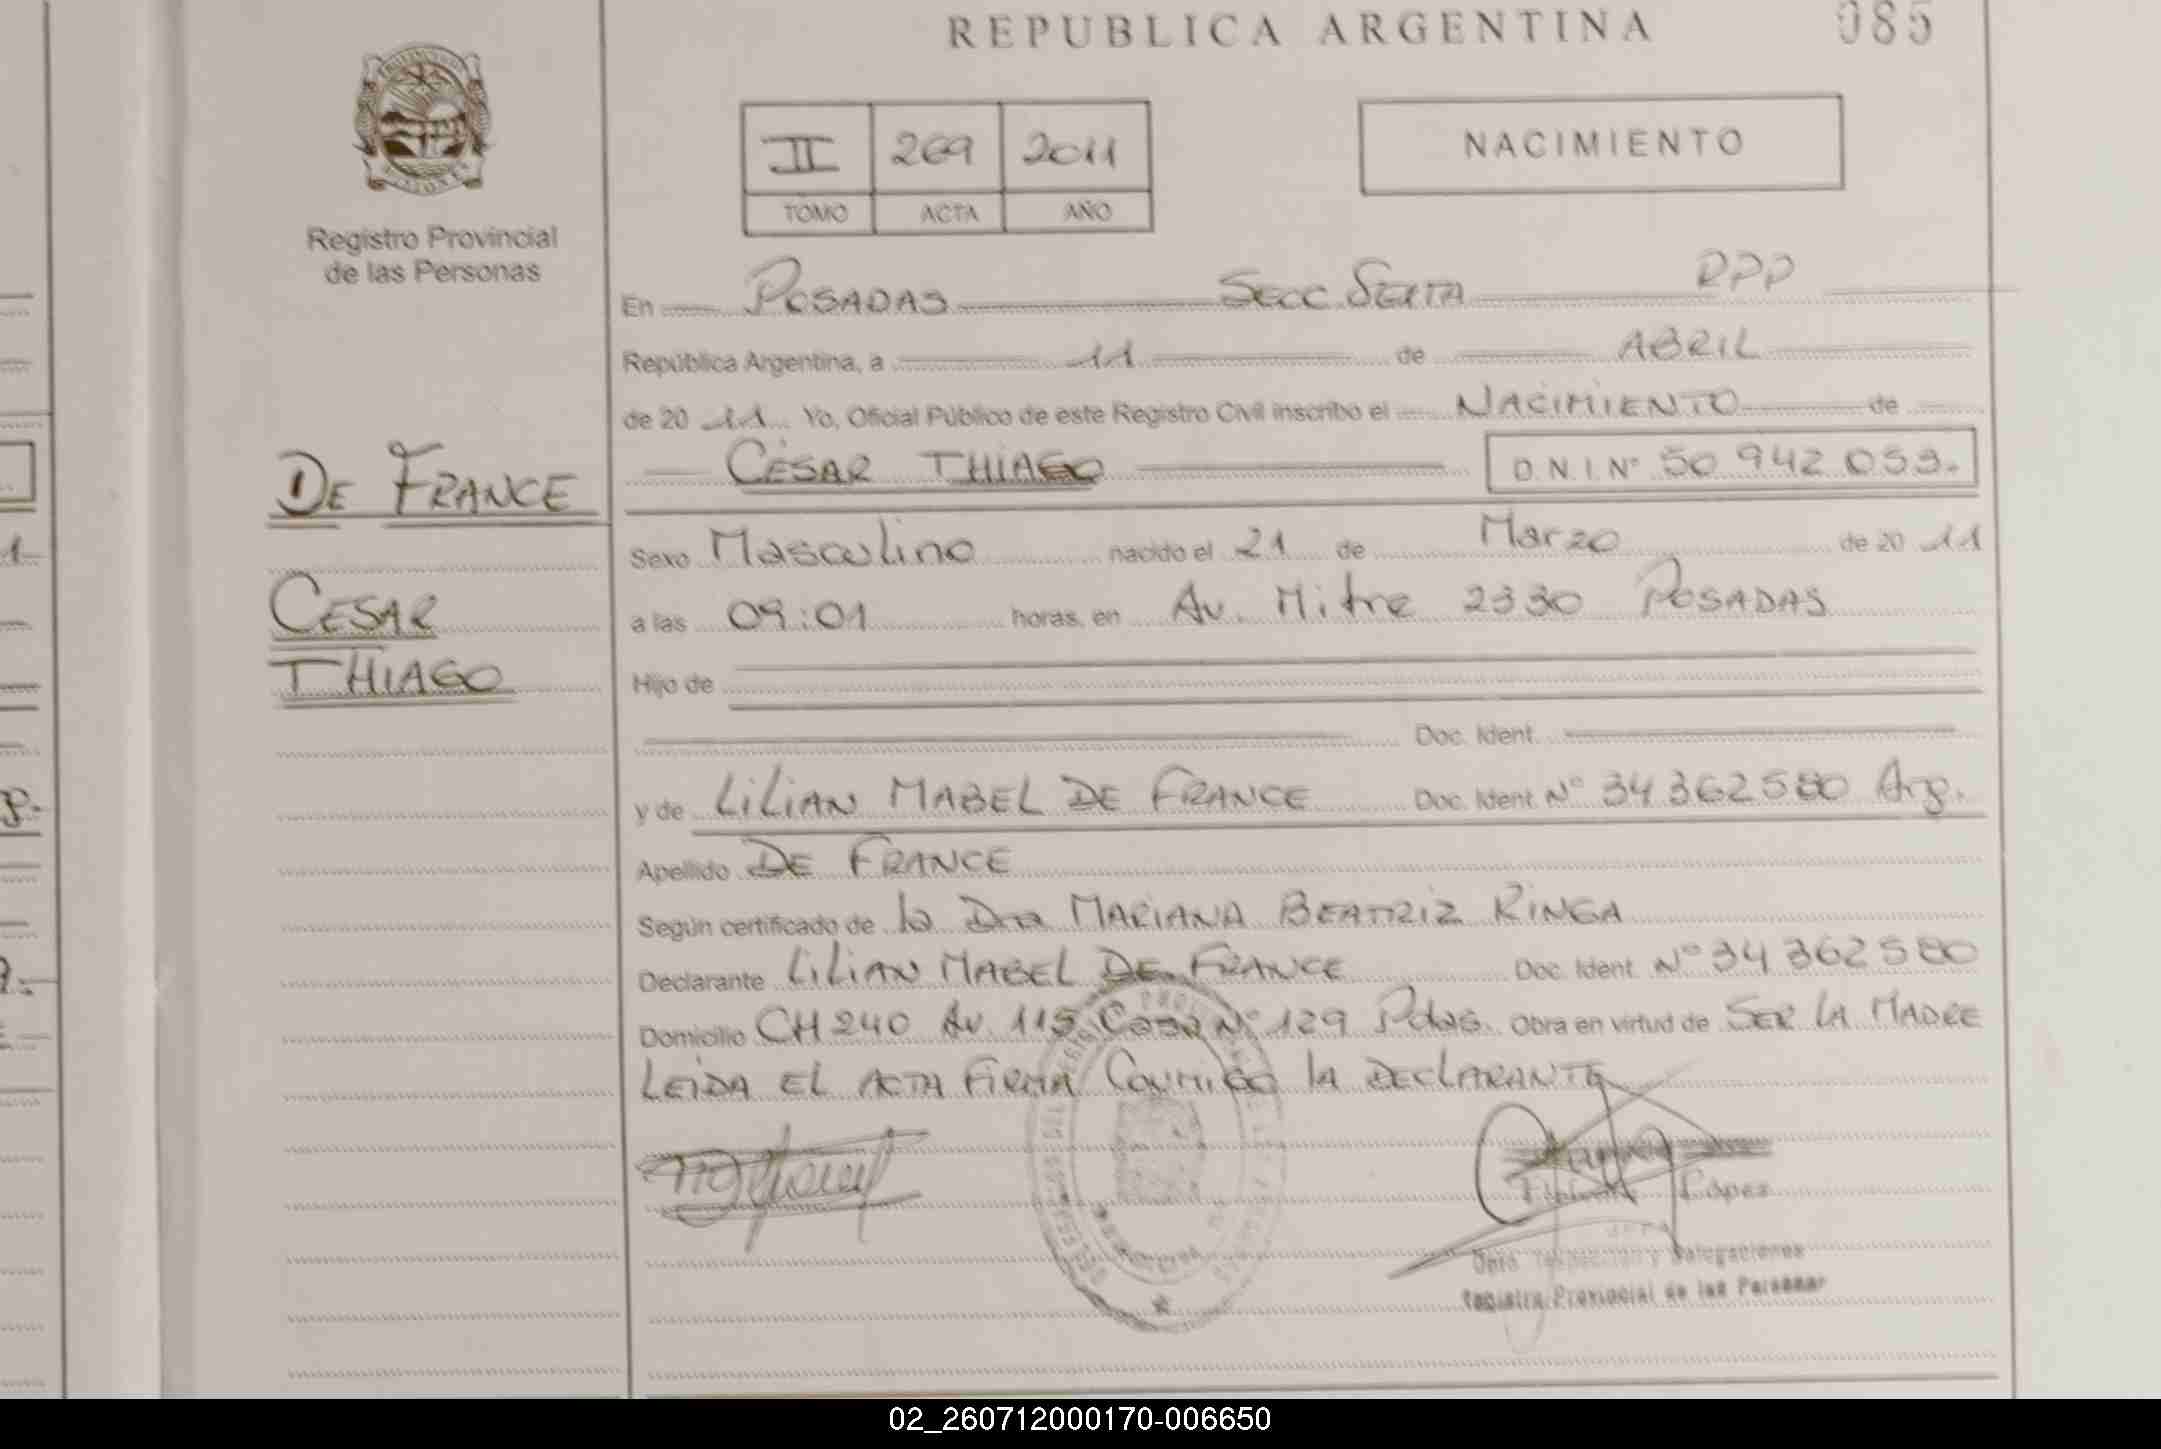 REPUBLICA ARGENTINA 085
II 269 2011
TOMO ACTA AÑO
NACIMIENTO
Registro Provincial
de las Personas
En POSADAS SECC SEXTA RPP
República Argentina, a 11 de ABRIL
de 20 11 Yo, Oficial Público de este Registro Civil inscribo el NACIMIENTO de
CÉSAR THIAGO D.N.I. N° 50 942 053.
DE FRANCE
CESAR
THIAGO
Sexo Masculino nacido el 21 de Marzo de 20 11
a las 09:01 horas, en Av. Mitre 2330 POSADAS
Hijo de
Doc. Ident.
y de LILIAN MABEL DE FRANCE Doc. Ident. N° 34 362 580 Arg.
Apellido DE FRANCE
Según certificado de la Dra MARIANA BEATRIZ RINGA
Declarante LILIAN MABEL DE FRANCE Doc. Ident. N° 34 362 580
Domicilio CH 240 Av. 115 Casa N° 129 Pdas. Obra en virtud de SER LA MADRE
LEIDA EL ACTA FIRMA CONMIGO LA DECLARANTE
López
Dpto. Inspección y Delegaciones
Registro Provincial de las Personas
02_260712000170-006650